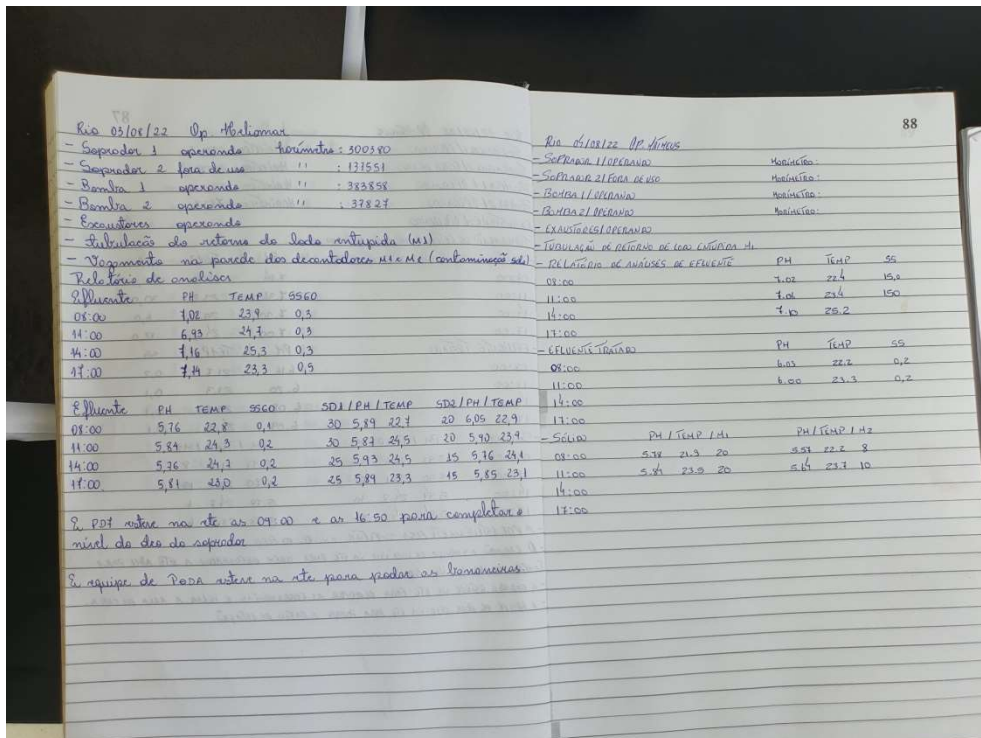 Rio 03/08/22 Op. Heliomar
- Soprador 1 operando horímetro: 300380
- Soprador 2 fora de uso " : 137551
- Bomba 1 operando " : 383858
- Bomba 2 operando " : 37827
- Exaustores operando
- Tubulação do retorno do lodo entupida (M1)
- Vazamento na parede dos decantadores
Relatório de analises
Efluente PH TEMP SS60
08:00 7,02 23,9 0,3
11:00 6,93 24,7 0,3
14:00 7,16 25,3 0,3
17:00 7,14 23,3 0,5
Efluente PH TEMP SS60 SD1/PH/TEMP SD2/PH/TEMP
08:00 5,76 22,8 0,1 30 5,89 22,7 20 6,05 22,9
11:00 5,84 24,3 0,2 30 5,87 24,5 20 5,90 23,9
14:00 5,76 24,7 0,2 25 5,93 24,5 15 5,76 24,1
17:00 5,81 23,0 0,2 25 5,89 23,3 15 5,85 23,1
as 09:00 e as 16:50 para completar o
nível do
soprador
E equipe de PODA esteve na ete para podar as bananeiras.
88
Rio 04/08/22 Op.
- SOPRADOR 1/OPERANDO HORÍMETRO:
- SOPRADOR 2/FORA DE USO HORÍMETRO:
- BOMBA 1/OPERANDO HORÍMETRO:
- BOMBA 2/OPERANDO HORÍMETRO:
- EXAUSTORES/OPERANDO
- TUBULAÇÃO DE RETORNO DE LODO ENTUPIDA M1
- RELATÓRIO DE ANÁLISES DE EFLUENTE PH TEMP SS
08:00 7.02 22.4 15,0
11:00 23.4 150
14:00 25.2
17:00
- EFLUENTE TRATADO PH TEMP SS
08:00 6.03 22.2 0,2
11:00 6.00 23.3 0,2
14:00
17:00
- SÓLIDO PH/TEMP/M1 PH/TEMP/M2
08:00 5.78 21.3 20 5.57 22.2 8
11:00 5.84 23.5 20 23.7 10
14:00
17:00